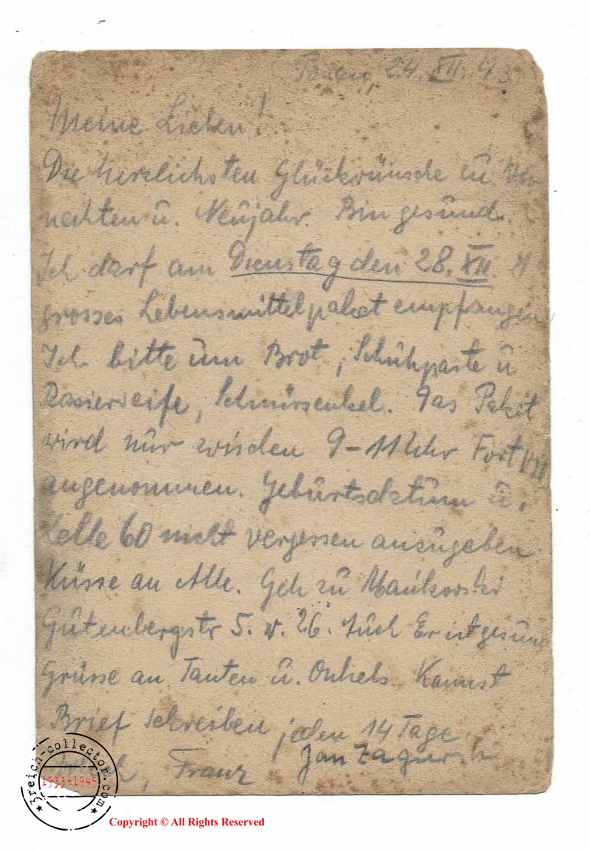 Posen, 24. XII. 43
Meine Lieben!
Die herzlichsten Glückwünsche zu Wei
nachten u. Neujahr. Bin gesund.
Ich darf am Dienstag den 28. XII. 
grosses Lebensmittelpaket empfangen
Ich bitte um Brot, Schuhpaste u
Rasierseife, Schnürsenkel. Das Paket
wird nur zwischen 9-11 Uhr Fort VII
angenommen. Geburtsdatum u.
Zelle 60 nicht vergessen anzugeben
Küsse an Alle. Geh zu Mańkowski
Gutenbergstr 5. w. 26. Auch Er ist gesund
Grüsse an Tanten u. Onkels. Kannst
Brief schreiben jeden 14 Tage
Franz Jan
3reich-collector.com
1933-1945
Copyright © All Rights Reserved